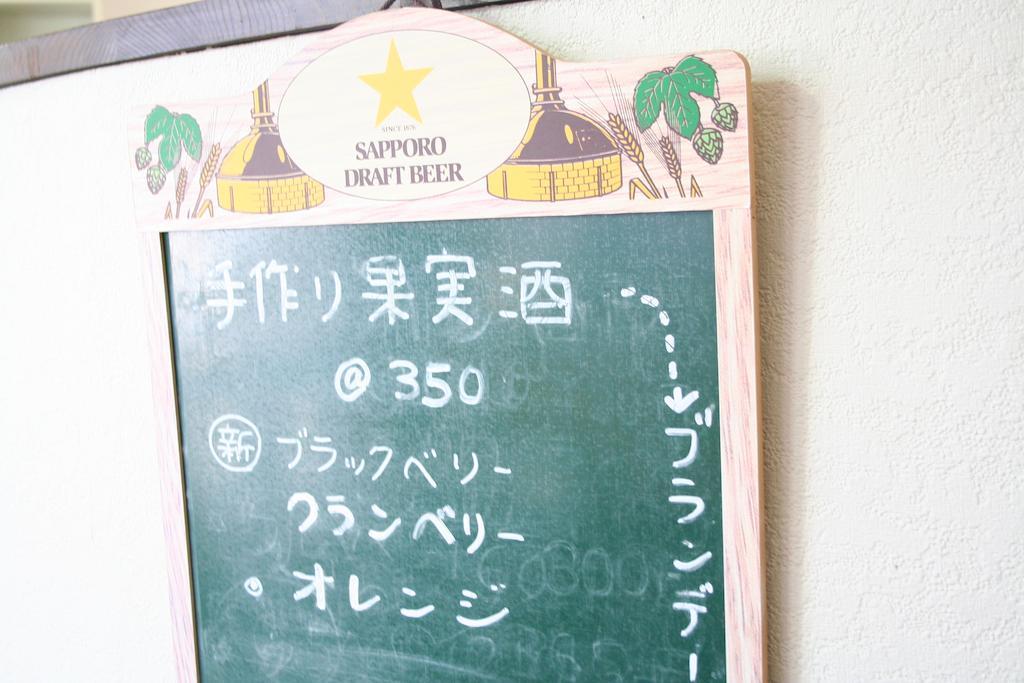 SINCE 1876
SAPPORO
DRAFT BEER
手作り果実酒
@350
新 ブラックベリー
クランベリー
オレンジ
ブランデー